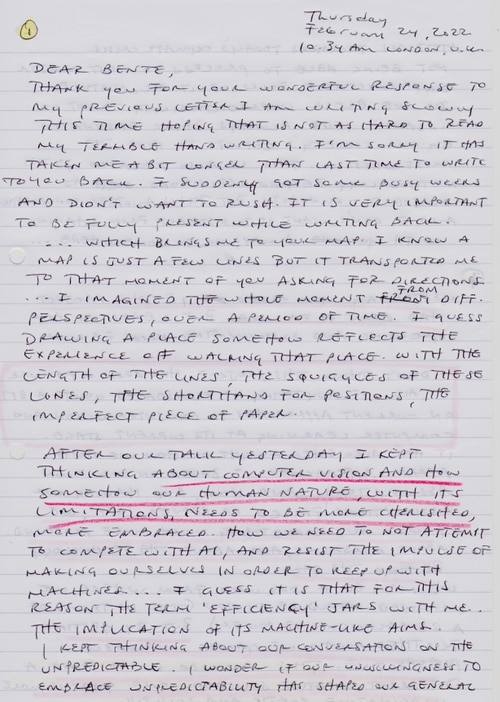 1
Thursday
February 24, 2022
10:34 AM LONDON, U.K.
DEAR BENTE,
THANK YOU FOR YOUR WONDERFUL RESPONSE TO
MY PREVIOUS LETTER I AM WRITING SLOWLY
THIS TIME HOPING THAT IS NOT AS HARD TO READ
MY TERRIBLE HAND WRITING. I'M SORRY IT HAS
TAKEN ME A BIT LONGER THAN LAST TIME TO WRITE
TO YOU BACK. I SUDDENLY GOT SOME BUSY WEEKS
AND DIDN'T WANT TO RUSH. IT IS VERY IMPORTANT
TO BE FULLY PRESENT WHILE WRITING BACK.
.... WHICH BRINGS ME TO YOUR MAP. I KNOW A
MAP IS JUST A FEW LINES BUT IT TRANSPORTED ME
TO THAT MOMENT OF YOU ASKING FOR DIRECTIONS
... I IMAGINED THE WHOLE MOMENT FROM DIFF.
PERSPECTIVES, OVER A PERIOD OF TIME. I GUESS
DRAWING A PLACE SOMEHOW REFLECTS THE
EXPERIENCE OFF WALKING THAT PLACE. WITH THE
LENGTH OF THE LINES, THE SQUIGGLES OF THESE
LINES, THE SHORTHAND FOR POSITIONS, THE
IMPERFECT PIECE OF PAPER.
AFTER OUR TALK YESTERDAY I KEPT
THINKING ABOUT COMPUTER VISION AND HOW
SOMEHOW OUR HUMAN NATURE, WITH ITS
LIMITATIONS, NEEDS TO BE MORE CHERISHED,
MORE EMBRACED. HOW WE NEED TO NOT ATTEMPT
TO COMPETE WITH AI, AND RESIST THE IMPULSE OF
MAKING OURSELVES IN ORDER TO KEEP UP WITH
MACHINES... I GUESS IT IS THAT FOR THIS
REASON THE TERM 'EFFICIENCY' JARS WITH ME.
THE IMPLICATION OF ITS MACHINE-LIKE AIMS.
I KEPT THINKING ABOUT OUR CONVERSATION ON THE
UNPREDICTABLE. I WONDER IF OUR UNWILLINGNESS TO
EMBRACE UNPREDICTABILITY HAS SHAPED OUR GENERAL